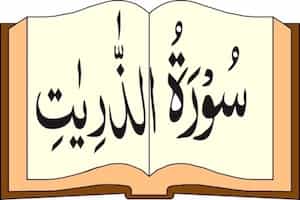 سُوْرَةُ الذّٰرِیٰتِ